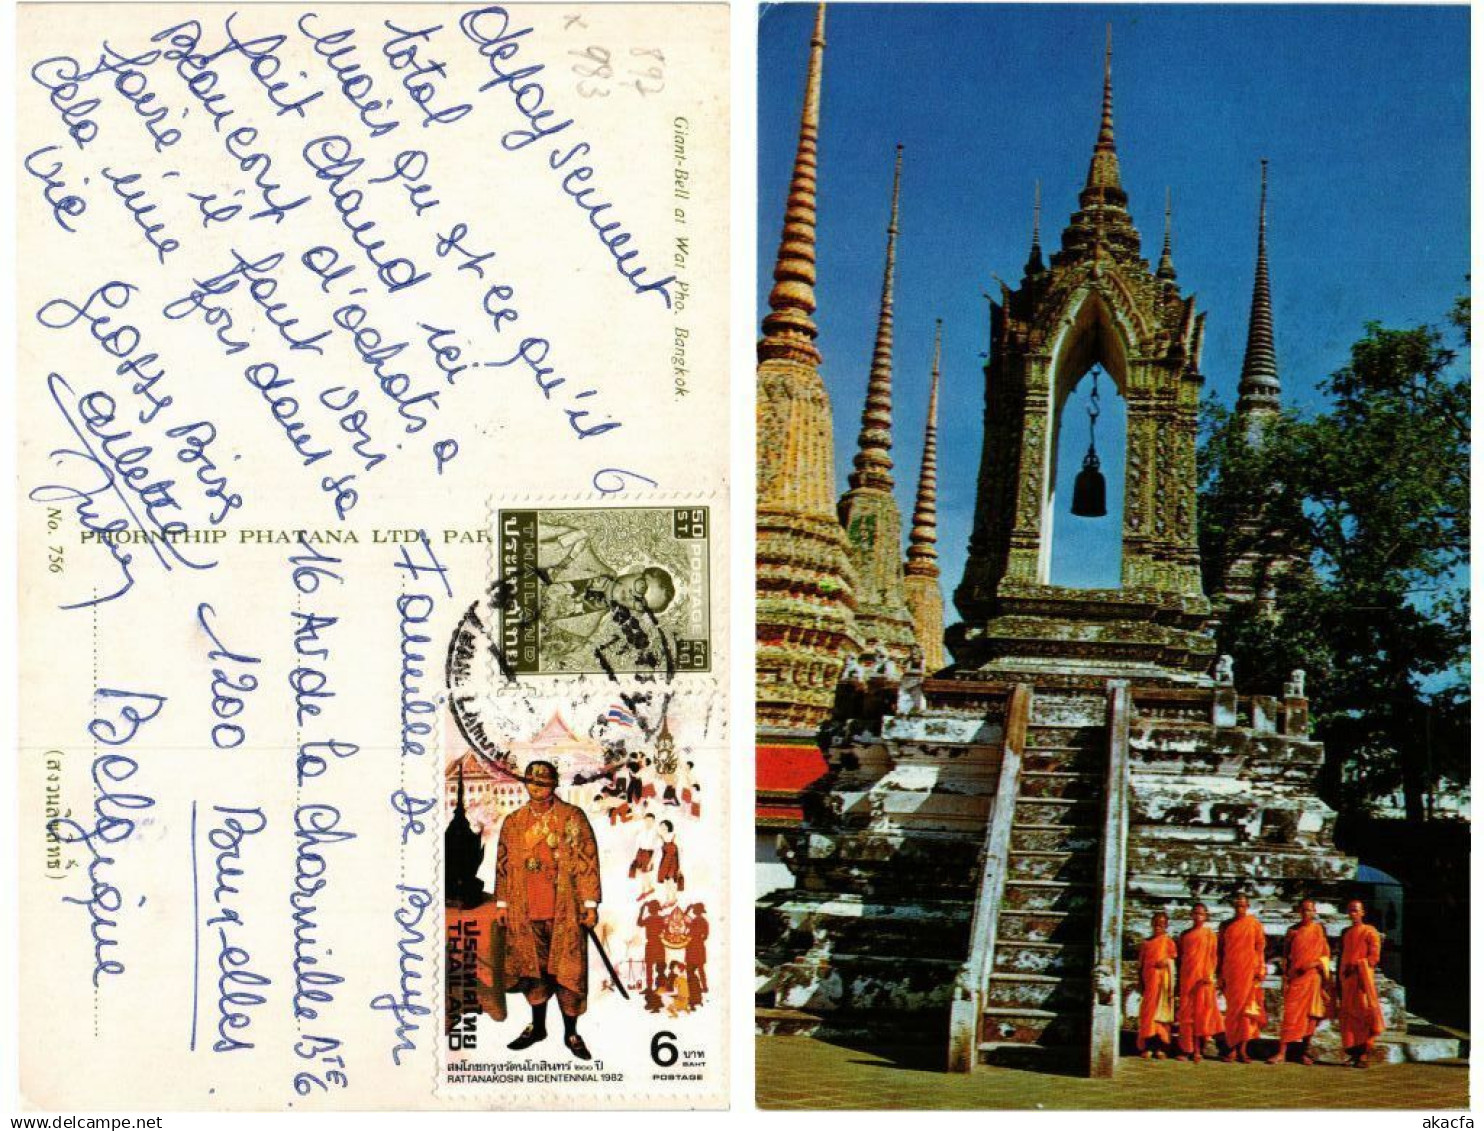 Depaysement
total
mais qu'est ce qu'il
fait chaud ici
Beaucoup d'achats a
faire il faut voir
cela une fois dans sa
vie
Grosses Bises
Arlette
6
x
983
892
Giant-Bell at Wat Pho. Bangkok.
No. 756
PHORNTHIP PHATANA LTD, PAR
(สงวนลิขสิทธิ์)
Famille De Bruyn
16 Av de la Charmille Bte 6
1200 Bruxelles
Belgique
50 POSTAGE ๕๐
ST. สต.
THAILAND
ประเทศไทย
ประเทศไทย
THAILAND
สมโภชกรุงรัตนโกสินทร์ ๒๐๐ ปี
RATTANAKOSIN BICENTENNIAL 1982
6 บาท
BAHT
POSTAGE
akacfa